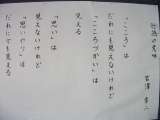 行為の意味
宮澤章二
「こころ」は
だれにも見えない
けれど
「こころづかい」は
見える
「思い」は
見えないけれど
「思いやり」は
だれにでも見える